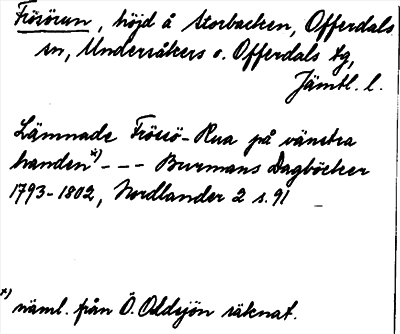 Frösörun, höjd å Storbacken, Offerdals
sn, Undersåkers o. Offerdals tg,
Jämtl. l.
Lämnade Frösö-Rua på vänstra
handen*) - - - Burmans Dagböcker
1793-1802, Nordlander 2 s. 91
*) näml. från Ö. Oldsjön räknat.